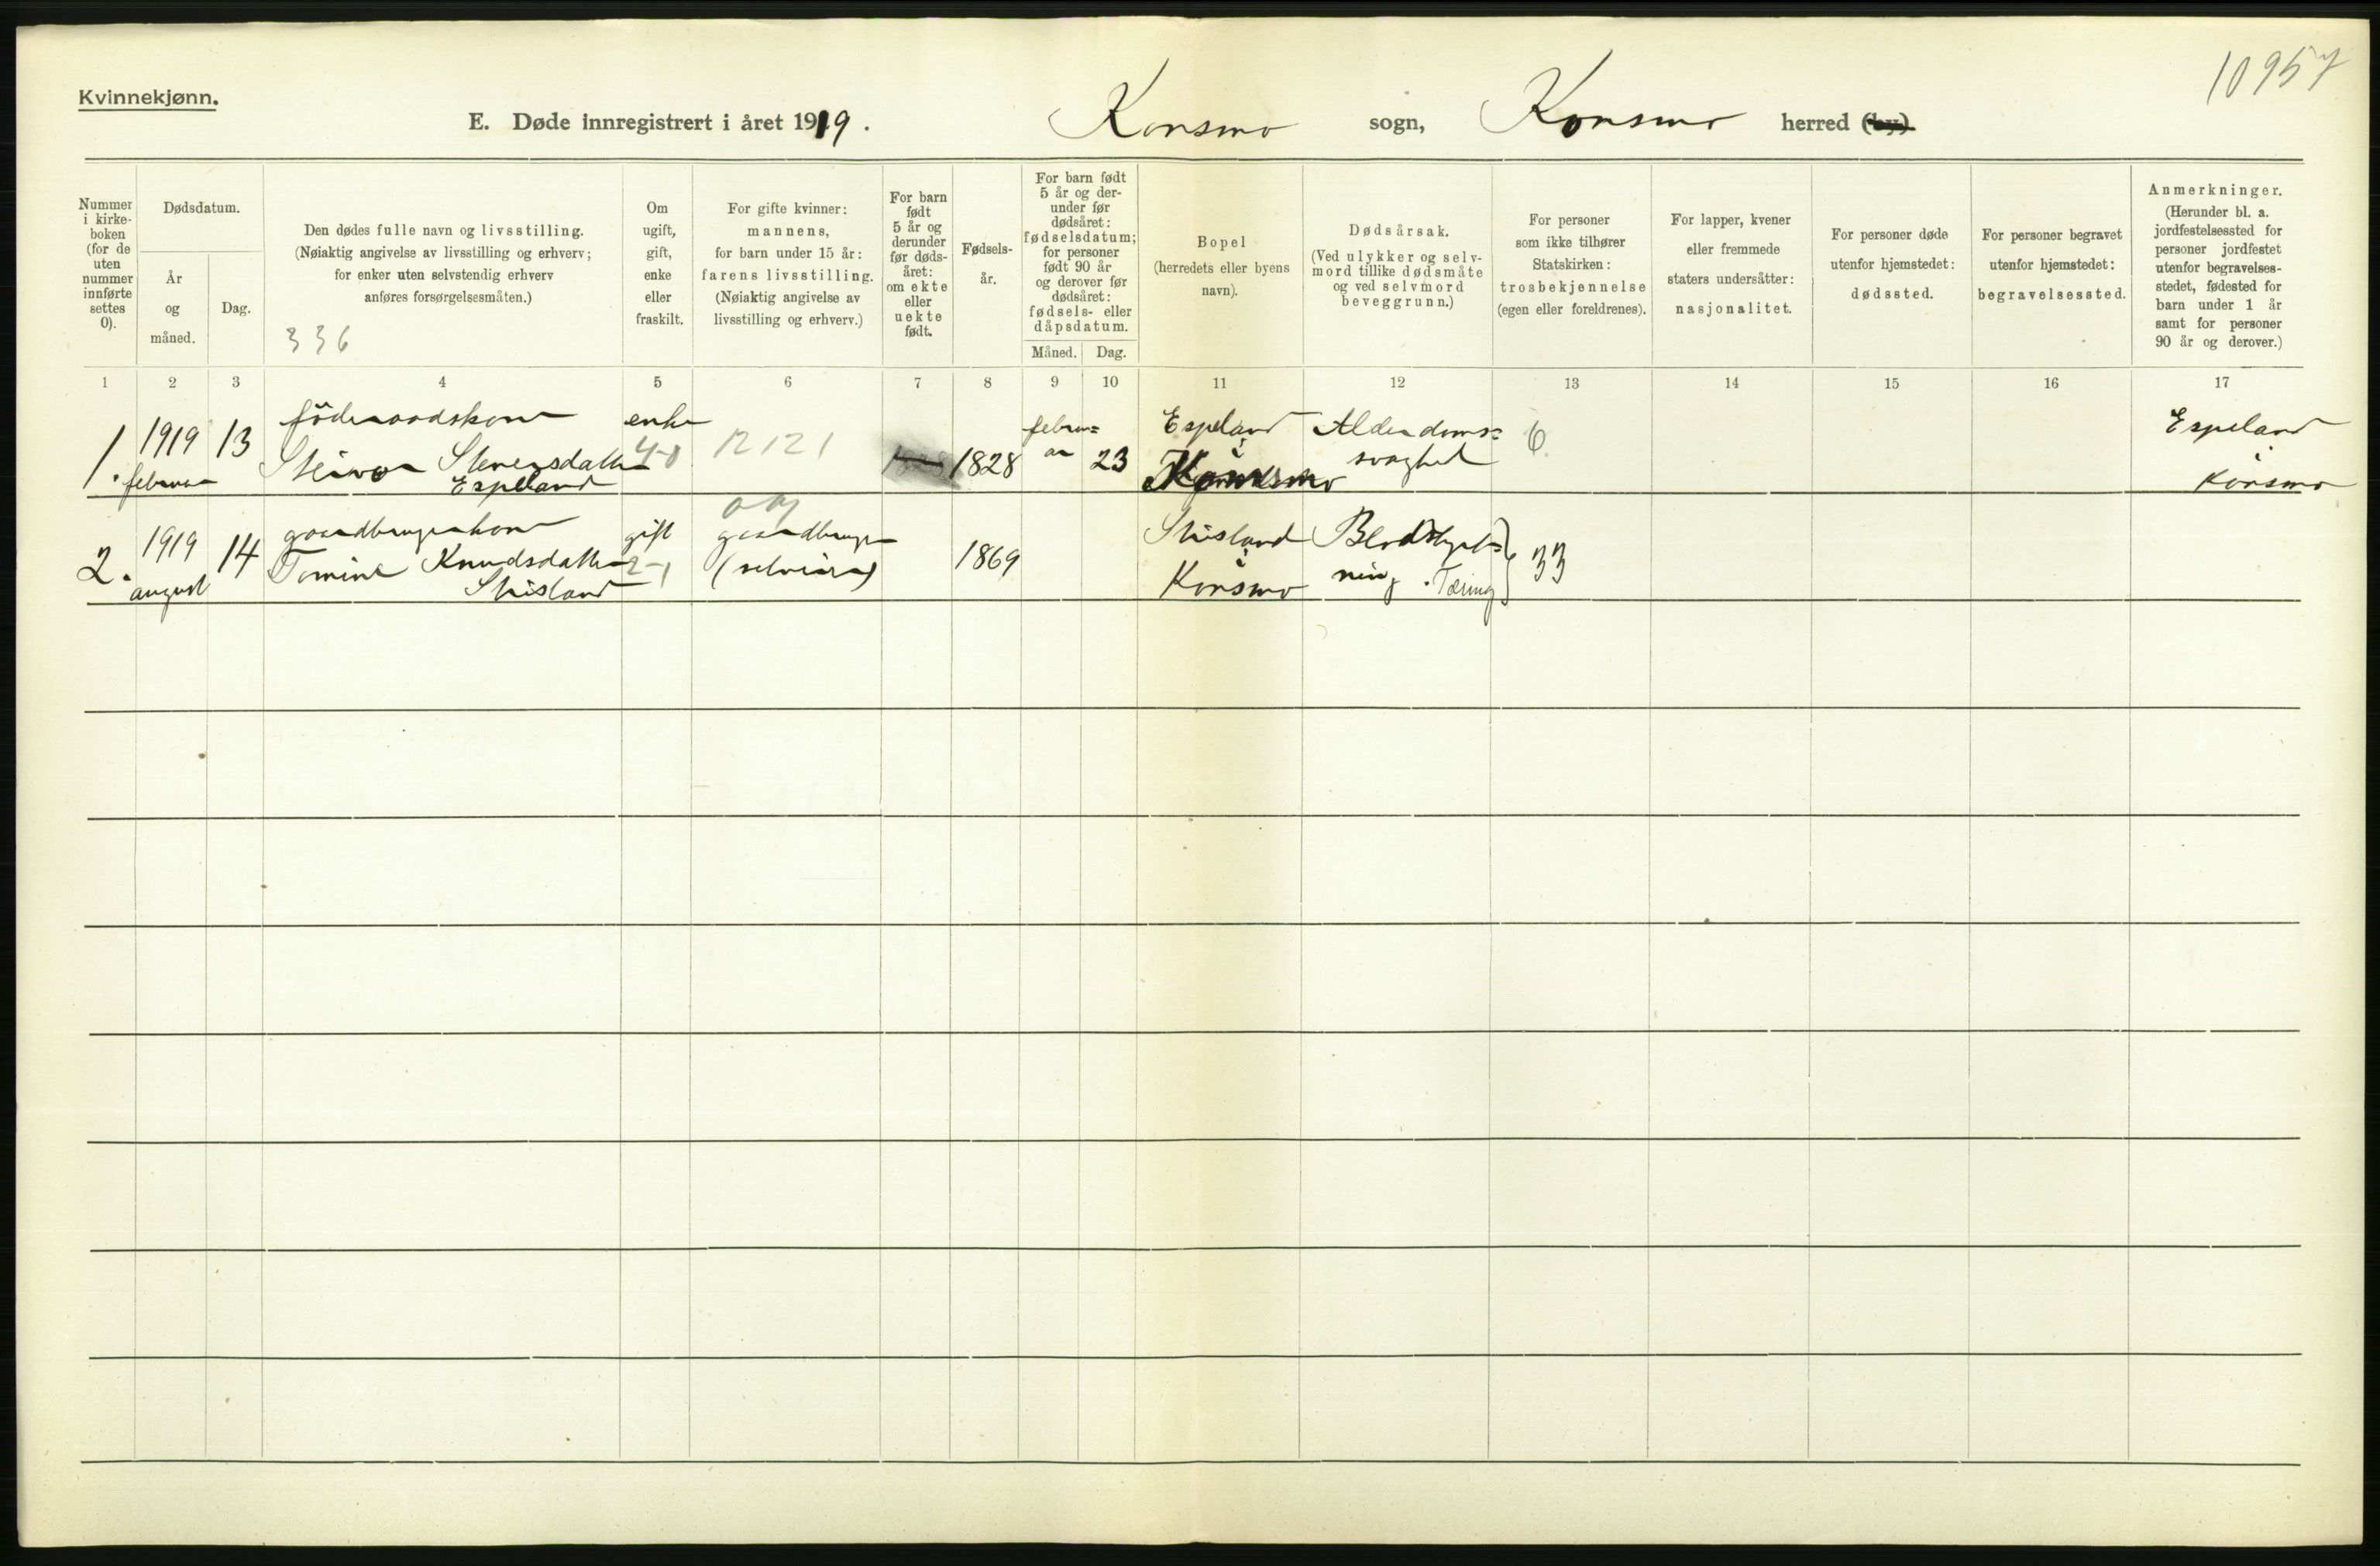 10957
Kvinnekjønn.
E. Døde innregistrert i året 1919.
Konsmo sogn, Konsmo herred (by)
Nummer i kirke-boken (for de uten nummer innførte settes 0).
Dødsdatum.
År og måned.
Dag.
Den dødes fulle navn og livsstilling.
(Nøiaktig angivelse av livsstilling og erhverv;
for enker uten selvstendig erhverv
anføres forsørgelsesmåten.)
336
Om ugift, gift, enke eller fraskilt.
For gifte kvinner:
mannens,
for barn under 15 år:
farens livsstilling.
(Nøiaktig angivelse av
livsstilling og erhverv.)
For barn født 5 år og derunder før døds-året: om ekte eller uekte født.
Fødsels-år.
For barn født 5 år og der-under før dødsåret: fødselsdatum; for personer født 90 år og derover før dødsåret: fødsels- eller dåpsdatum.
Måned. Dag.
Bopel
(herredets eller byens
navn).
Dødsårsak.
(Ved ulykker og selv-
mord tillike dødsmåte
og ved selvmord
beveggrunn.)
For personer
som ikke tilhører
Statskirken:
trosbekjennelse
(egen eller foreldrenes).
For lapper, kvener
eller fremmede
staters undersåtter:
nasjonalitet.
For personer døde
utenfor hjemstedet:
dødssted.
For personer begravet
utenfor hjemstedet:
begravelsessted.
Anmerkninger.
(Herunder bl. a.
jordfestelsessted for
personer jordfestet
utenfor begravelses-
stedet, fødested for
barn under 1 år
samt for personer
90 år og derover.)
1 2 3 4 5 6 7 8 9 10 11 12 13 14 15 16 17
föderaadskone enke februar Espeland i Alderdoms= Espeland
1. 1919 13 4-0 12121 1828 1828 23 svaghed 6 i
februar Espeland Konsmo Konsmo
1919 gaardbrugerkone gift gaardbruger i Blodstyrt=
2. august 14 Tomine Knudsdatter 2-1 (selveier) 1869 Konsmo ning. Tæring 33